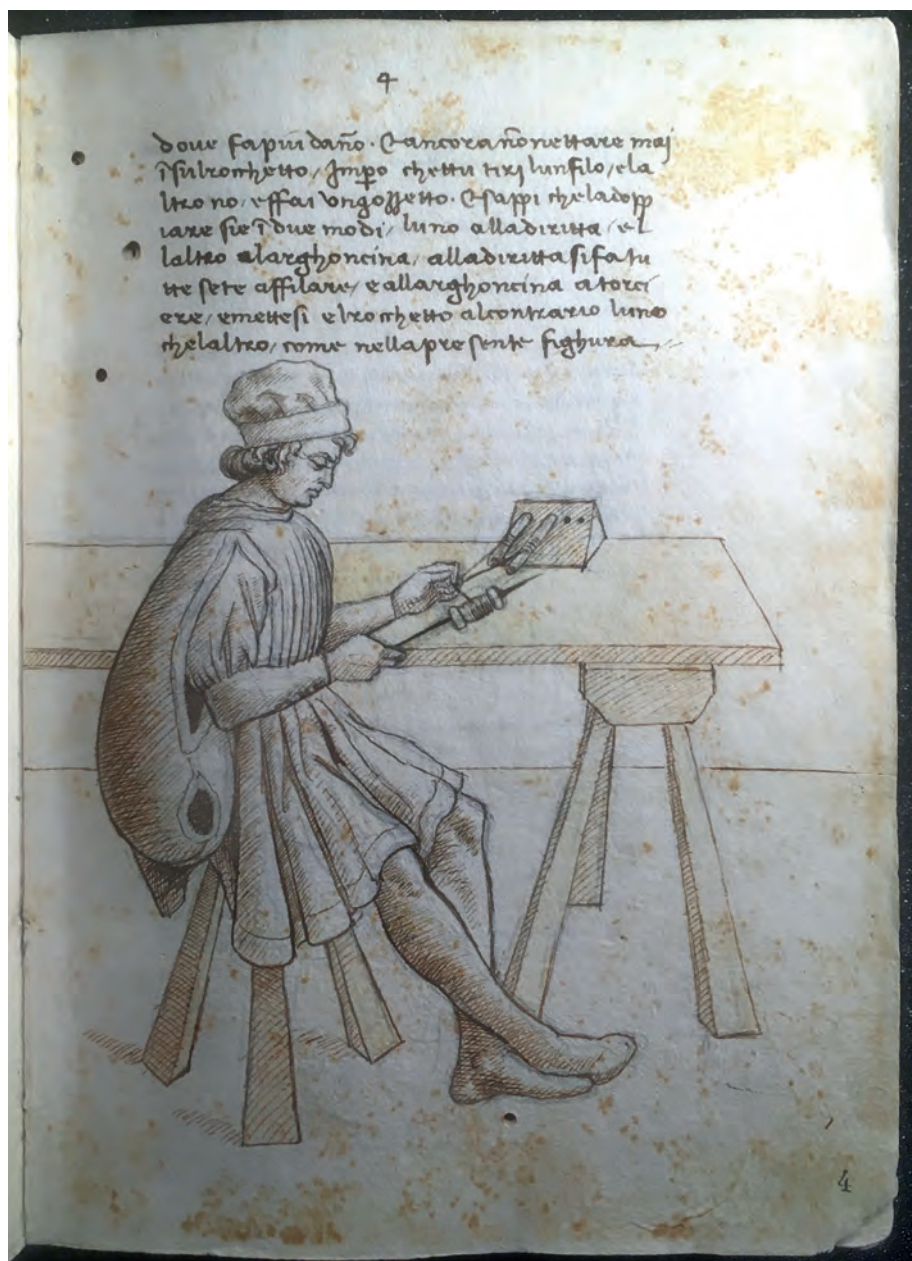 4
dove fa piu daño · Et ancora nõ nettare maj
ĩ sul rocchetto / Imp̱o chettu tirj lun filo / ela
ltro no / effai un gozzetto · Et sappi che ladopp
iare sie ĩ due modi / luno alladiritta / el
laltro alarghoncina / alladiritta si fa tu
tte sete affilare / e allarghoncina a torci
ere / emettesi el rocchetto alcontrario luno
chelaltro / come nella presente fighura
4